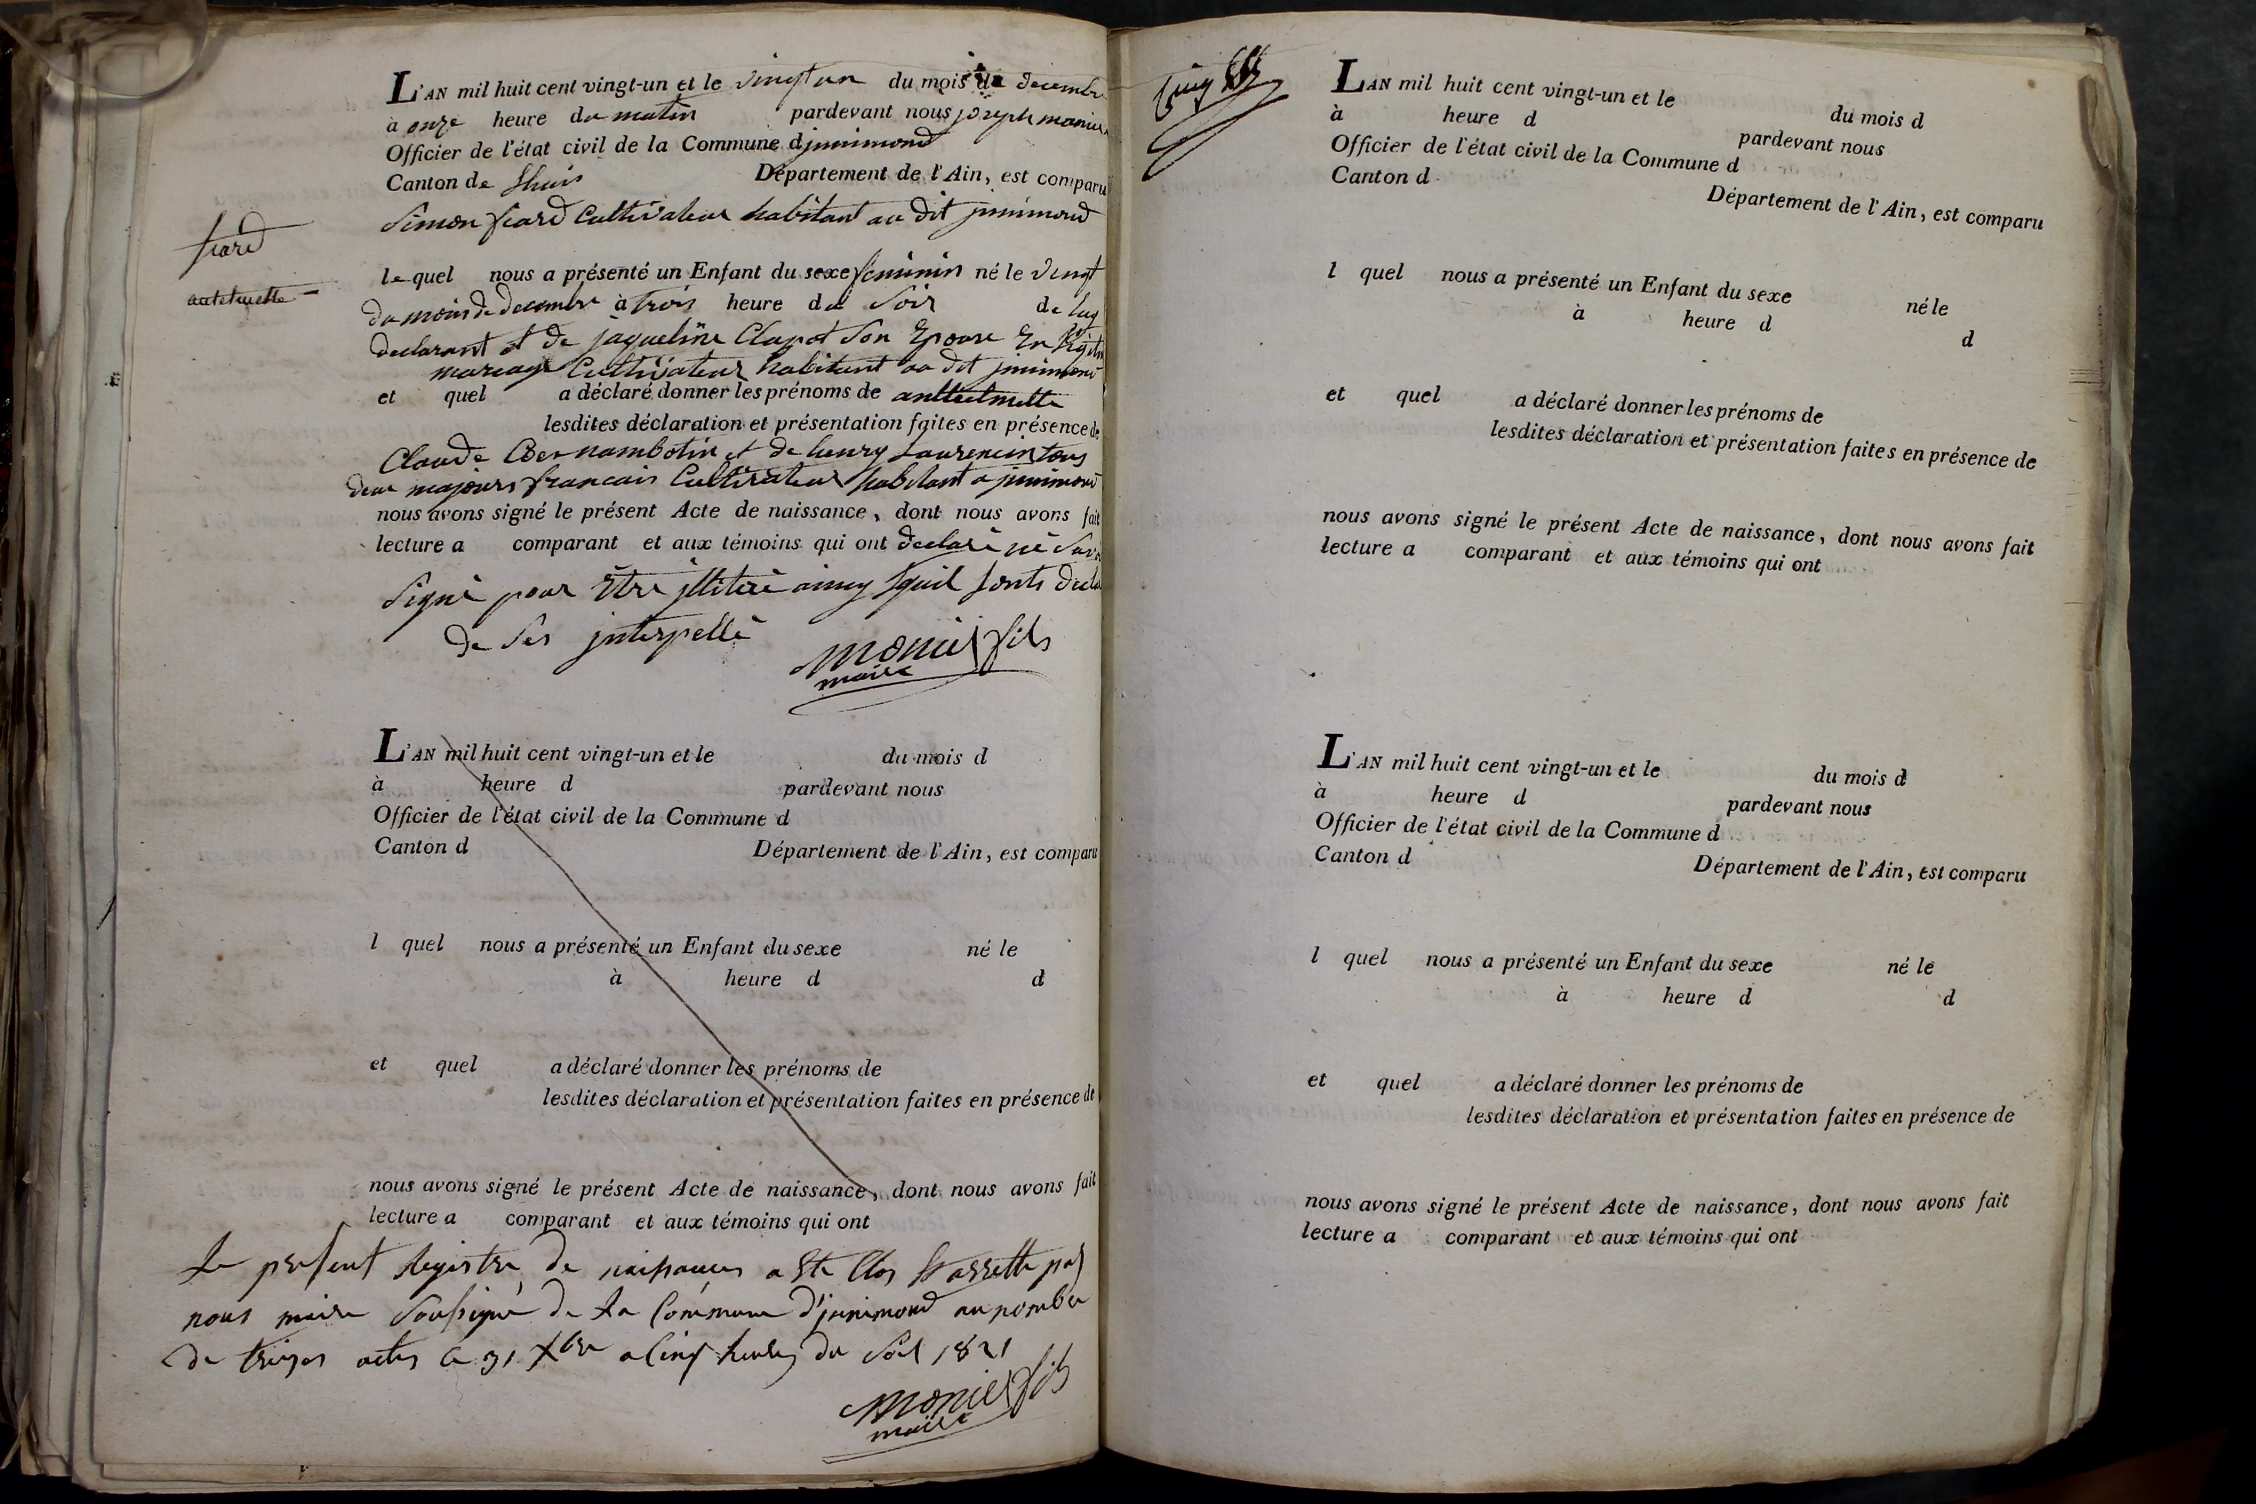 L'AN mil huit cent vingt-un et le vingt un du mois de decembre
à onze heure du matin pardevant nous joseph monier
Officier de l'état civil de la Commune d jzinimond
Canton de Lhuis Département de l'Ain, est comparu
Simon fiard Cultivateur habitant au dit jzinimond
fiard
le quel nous a présenté un Enfant du sexe feminin né le vingt
anthelmette
du mois de decembre à trois heure du soir de luy
declarant et de jaqueline Clapot Son Epouse En legit
mariage Cultivateur habitant au dit jzinimond
et quel a déclaré donner les prénoms de anthelmette
lesdites déclaration et présentation faites en présence de
Claude Bernambotin et de henry Laurencin tous
deux majeurs francais Cultivateur habitant a jzinimond
nous avons signé le présent Acte de naissance, dont nous avons fait
lecture a comparant et aux témoins qui ont declaré né Savo
Signé pour Etre jlliteré ainsy quil sonts decla
de Ses jnterpellé
monier fils
maire
L'AN mil huit cent vingt-un et le du mois d
à heure d pardevant nous
Officier de l'état civil de la Commune d
Canton d Département de l'Ain, est comparu
l quel nous a présenté un Enfant du sexe né le
à heure d d
et quel a déclaré donner les prénoms de
lesdites déclaration et présentation faites en présence de
nous avons signé le présent Acte de naissance, dont nous avons fait
lecture a comparant et aux témoins qui ont
Le present Registre de naissances a Ete Clos et arretté par
nous maire Soussigné de la Commune d'jzinimond au nombre
de treizes actes le 31 Xbre a Cinq heures du Soir 1821
monier fils
maire
Cinq
L'AN mil huit cent vingt-un et le du mois d
à heure d pardevant nous
Officier de l'état civil de la Commune d
Canton d Département de l'Ain, est comparu
l quel nous a présenté un Enfant du sexe né le
à heure d d
et quel a déclaré donner les prénoms de
lesdites déclaration et présentation faites en présence de
nous avons signé le présent Acte de naissance, dont nous avons fait
lecture a comparant et aux témoins qui ont
L'AN mil huit cent vingt-un et le du mois d
à heure d pardevant nous
Officier de l'état civil de la Commune d
Canton d Département de l'Ain, est comparu
l quel nous a présenté un Enfant du sexe né le
à heure d d
et quel a déclaré donner les prénoms de
lesdites déclaration et présentation faites en présence de
nous avons signé le présent Acte de naissance, dont nous avons fait
lecture a comparant et aux témoins qui ont